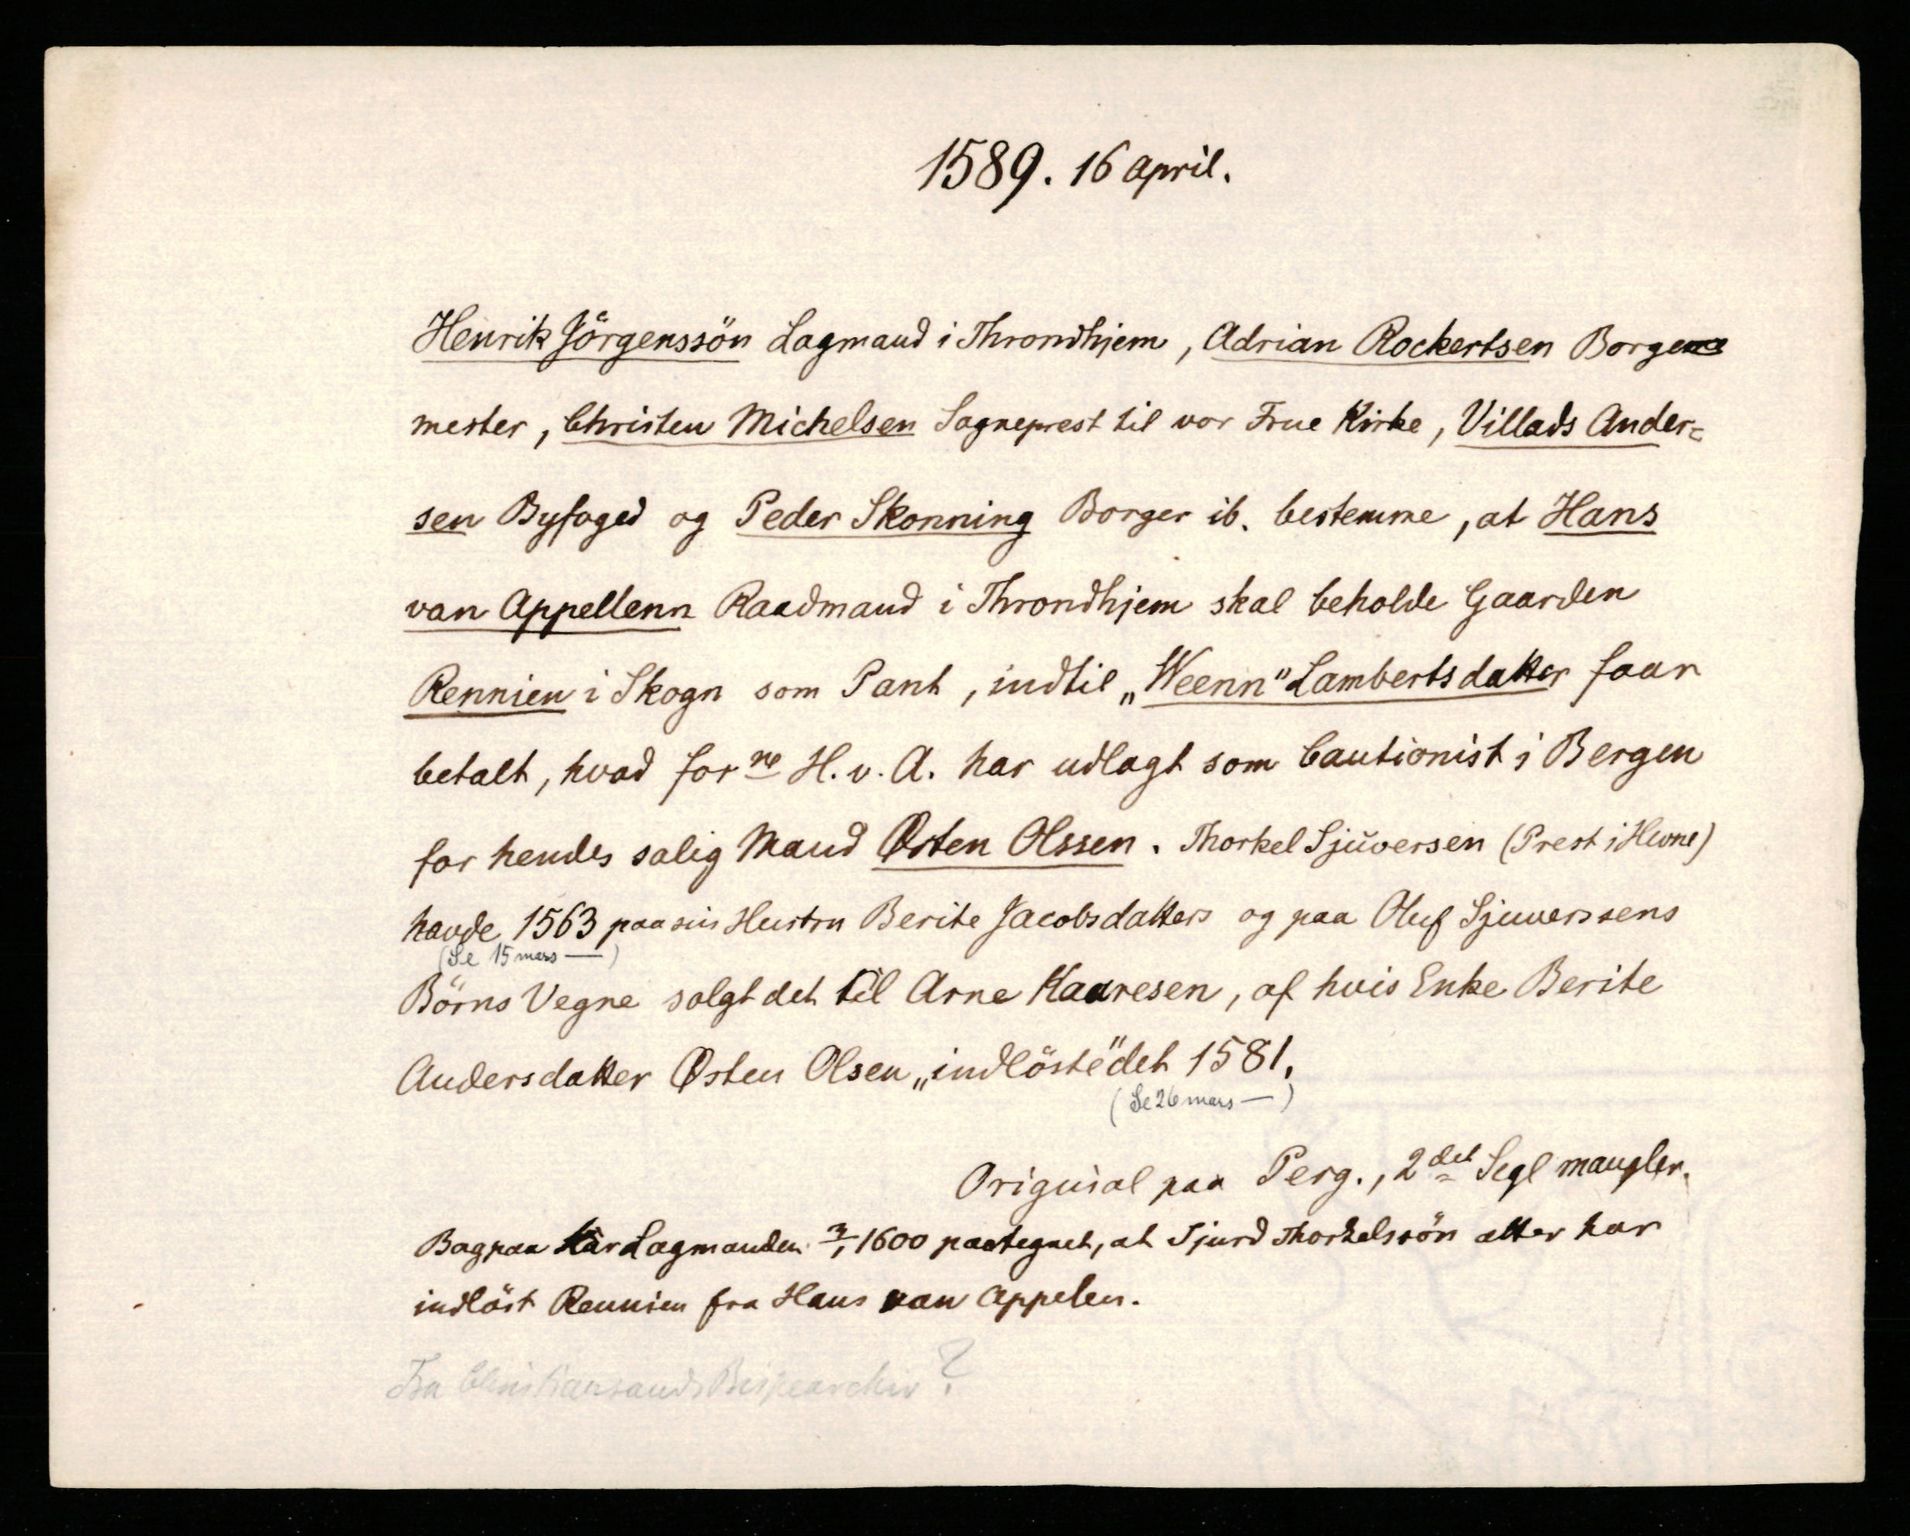 1589. 16 April.
Henrik Jörgenssön Lagmand i Throndhjem, Adrian Rockertsen Borge
mester, Christen Michelsen Sogneprest til vor Frue Kirke, Villads Ander=
sen Byfoged og Peder Skonning Borger ib. bestemme, at Hans
van Appellenn Raadmand i Throndhjem skal beholde Gaarden
Rennien i Skogn som Pant, indtil „Weenn" Lambertsdatter faar
betalt, hvad forne H. v. A. har udlagt som Cautionist i Bergen
for hendes salig Mand Østen Olssen. Thorkel Sjŭversen (Prest i Hevne)
havde 1563 paa sin Hustru Berite Jacobsdatters og paa Oluf Sjuverssens
(Se 15 mars —)
Börns Vegne solgt det til Arne Kaaresen, af hvis Enke Berite
Andersdatter Østen Olsen „indlöste" det 1581.
(Se 26 mars —)
Original paa Perg., 2det Segl mangler.
Bagpaa har Lagmanden 3/1 1600 paategnet, at Sjurd Thorkelssön atter har
indlöst Rennien fra Hans van Appelen.
Fra Christianssands Bispearchiv?